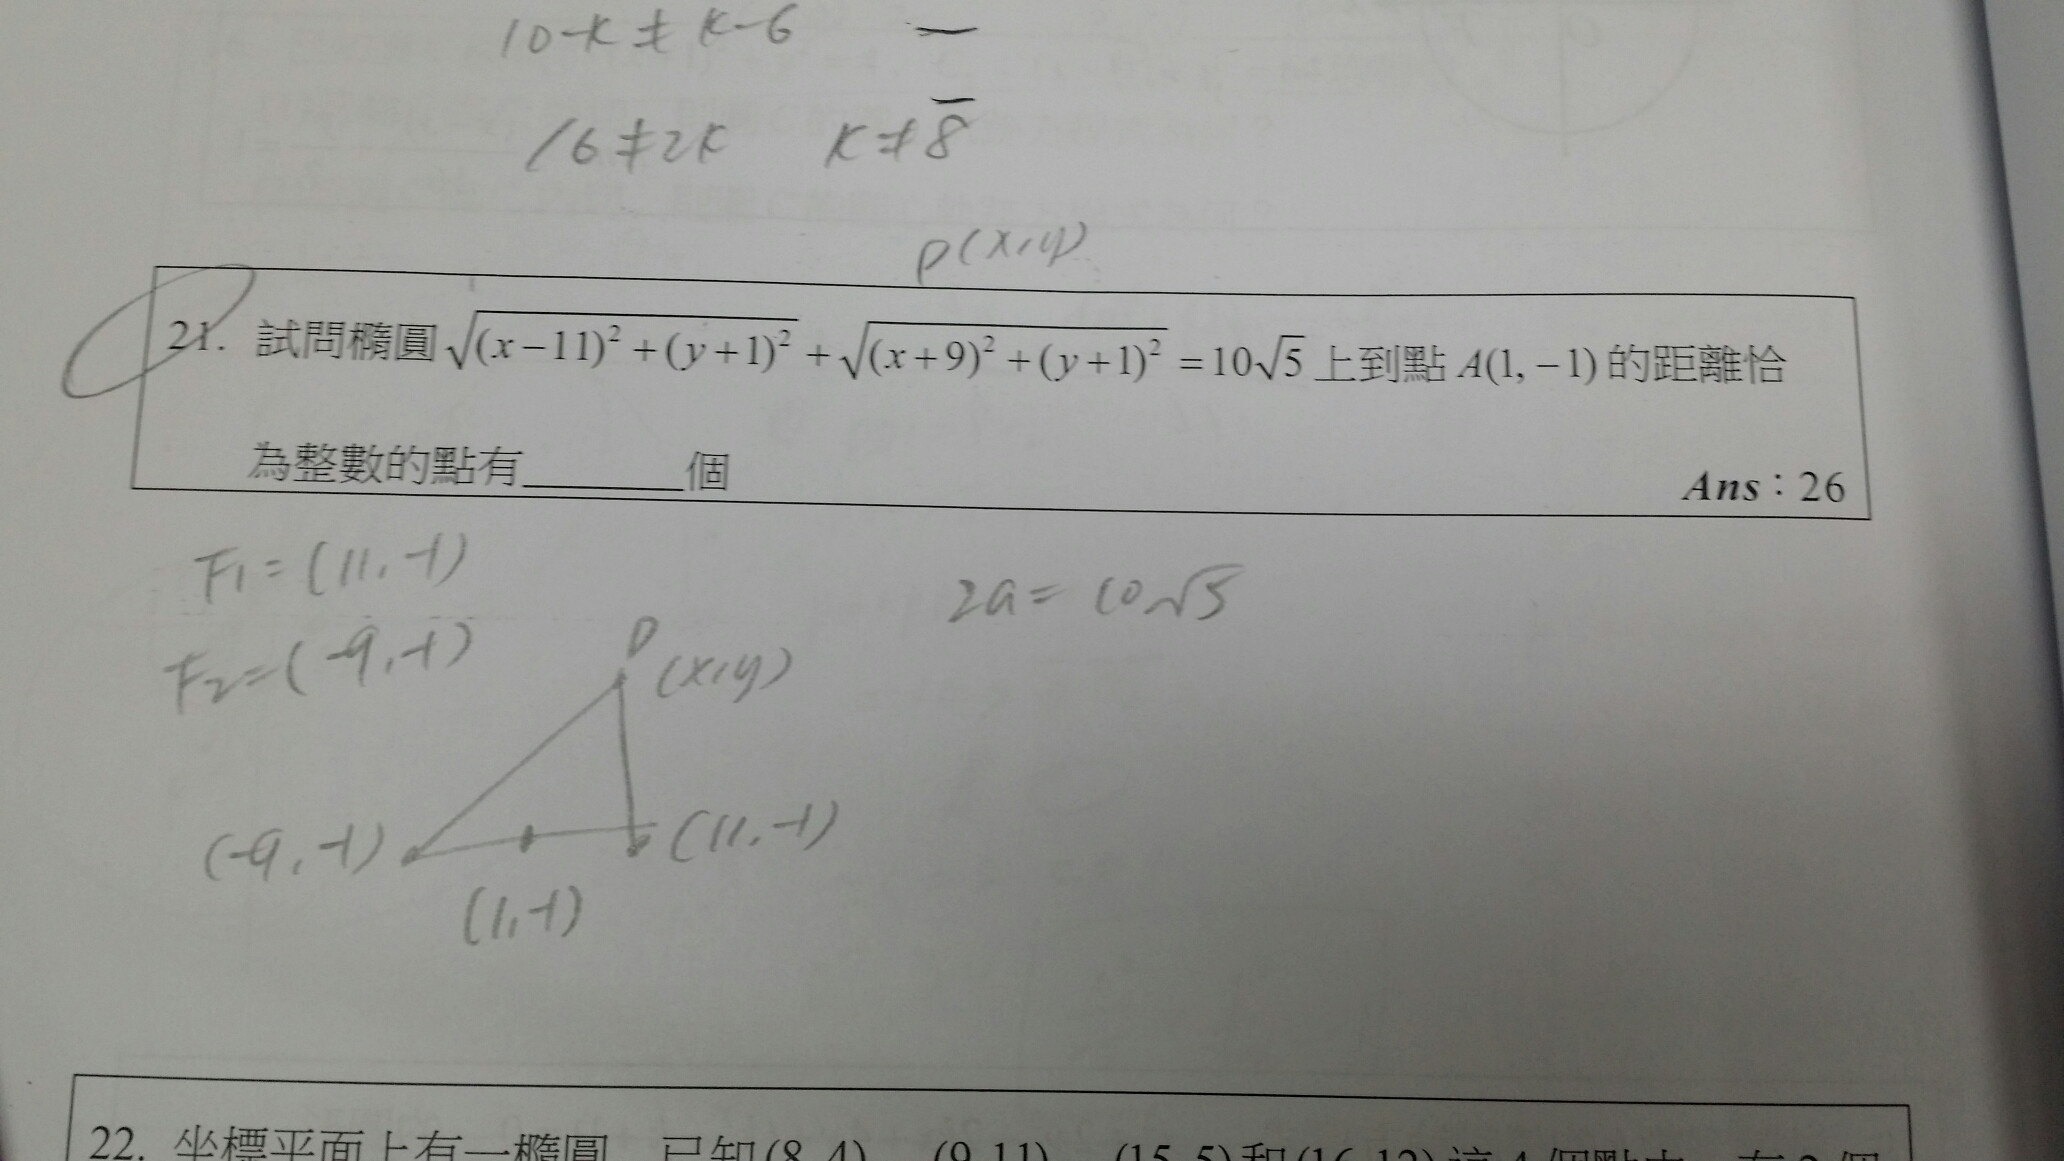 10-k≠k-6
16≠2k k≠8
P(x,y)
21. 試問橢圓√((x−11)²+(y+1)²)+√((x+9)²+(y+1)²)=10√5上到點A(1,−1)的距離恰
為整數的點有______個 Ans：26
F1=(11,-1)
2a=10√5
F2=(-9,-1)
P
(x,y)
(-9,-1) (11,-1)
(1,-1)
22. 坐標平面上有一橢圓 已知(8,4) (9,11) (15,5)和(16,12)這4個點中